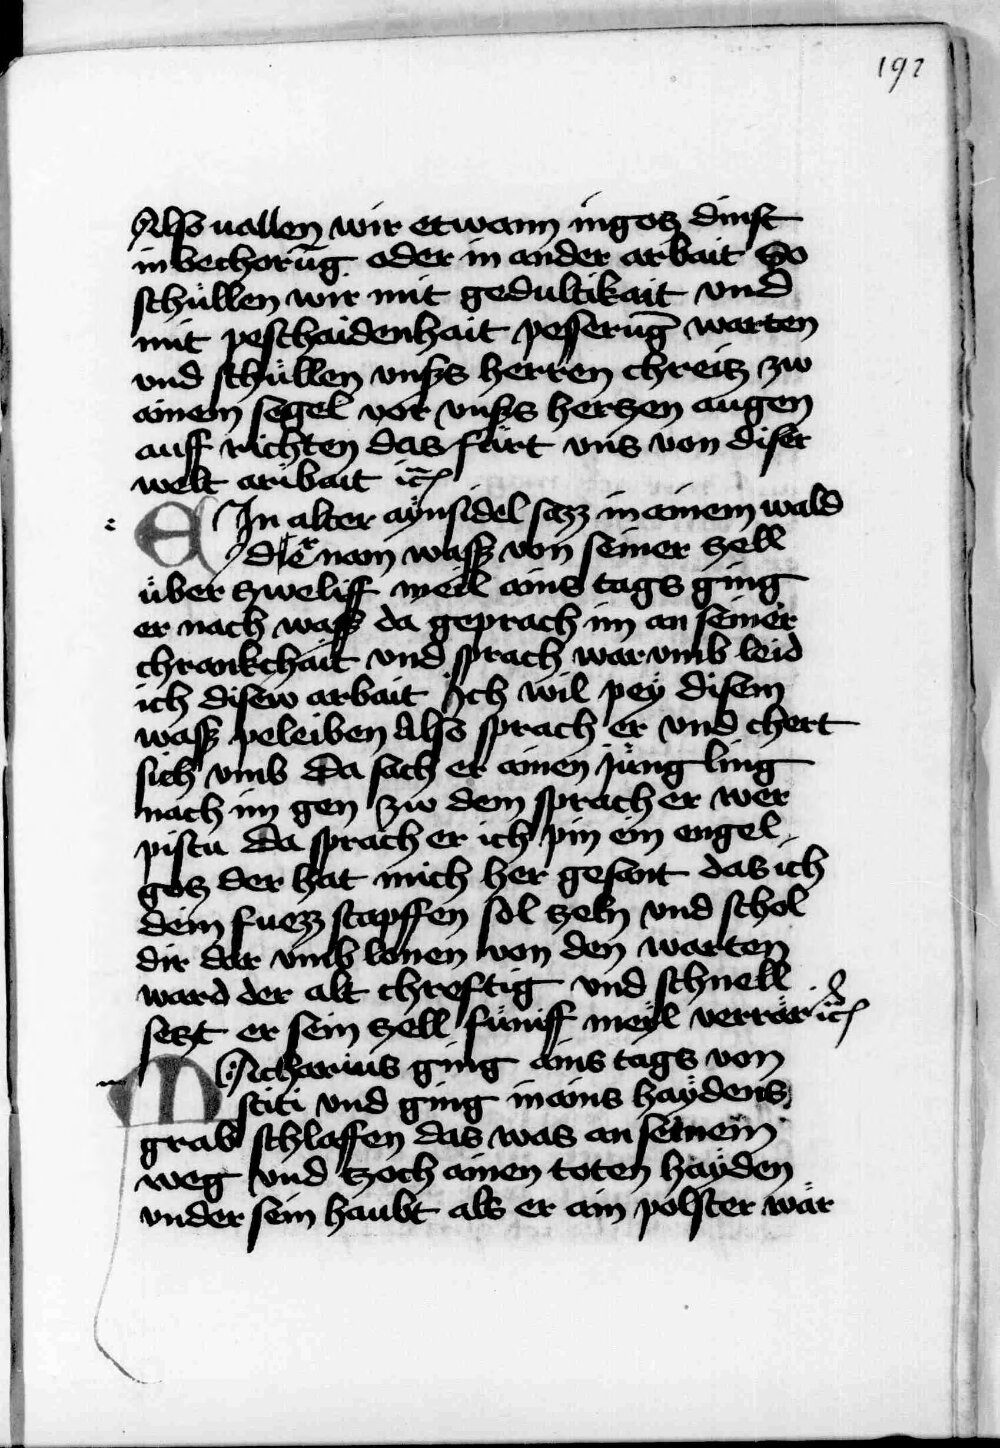 192
Also uallen wir etwann in gotz dinst
in bechorūg oder in ander arbait So
schüllen wir mit gedultikait vnd
mit peschaidenhait pesserūg warten
vnd schüllen vnsers herren chreitz zw
ainem segel vor vnsers hertzen augen
auff richten das fürt vns von diser
welt arübait ꝛc̄
EIn alter aynsidel sazz in ainem wald
der nam wasser von seiner zell
über zweliff meil ains tags ging
er nach wasser da geprach im an seiner
chrankchait vnd sprach warumb leid
ich disew arbait Ich wil pey disem
wasser peleiben Also sprach er vnd chert
sich vmb Da sach er ainen jüngling
nach im gen zw dem sprach er wer
pistu Da sprach er ich pin ein engel
gotz der hat mich her gesant das ich
dein fuezz stapffen sol zeln vnd schol
dir dar vmb lonen von den warten
ward der alt chreftig vnd schnell
setzt er sein zell füniff meyl verrär ꝛc̄
MAcharius ging ains tags von
sciti vnd ging in ains haydens
grab schlaffen das was an seinem
weg vnd zoch ainen toten hayden
vnder sein haubt als er ain polster wär